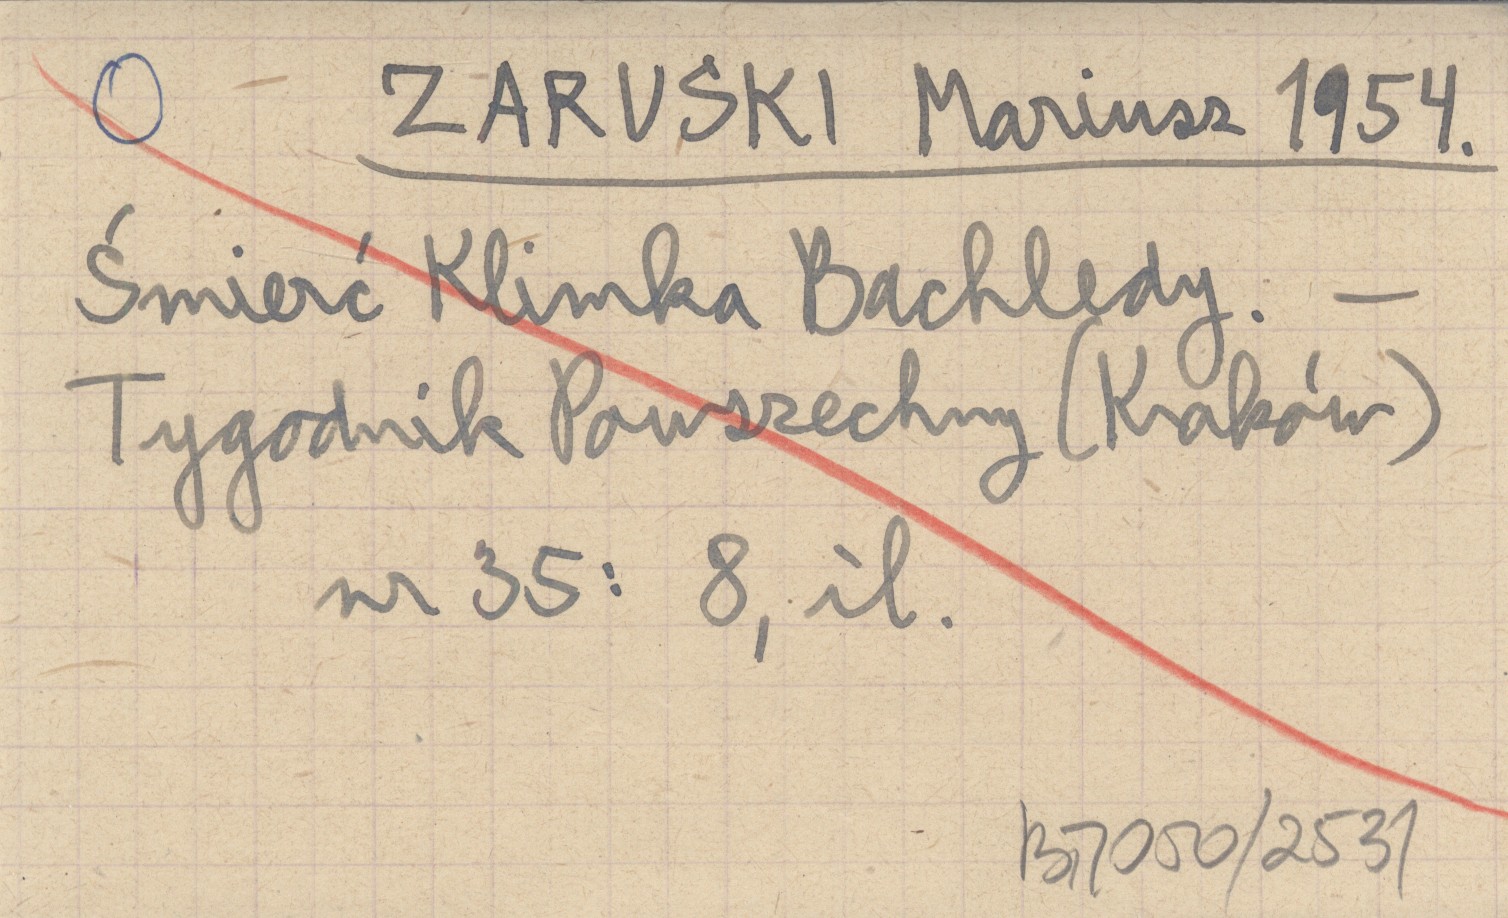 O ZARUSKI Mariusz 1954.
Śmierć Klimka Bachledy. —
Tygodnik Powszechny (Kraków)
nr 35: 8, il.
B7050/2531